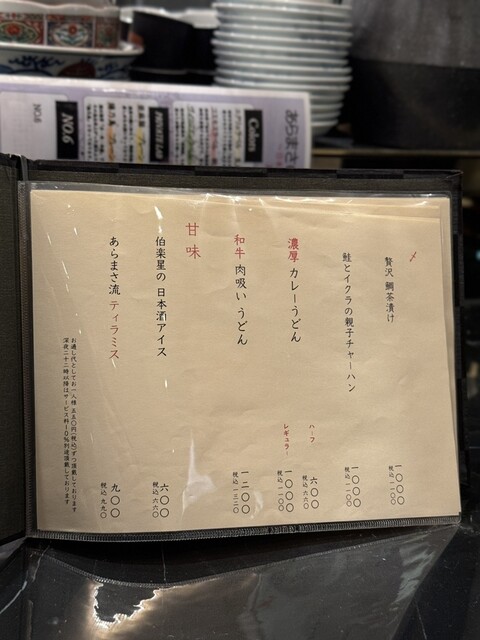 〆
贅沢 鯛茶漬け
一〇〇〇
税込 一一〇〇
鮭とイクラの親子チャーハン
一〇〇〇
税込 一一〇〇
濃厚 カレーうどん
ハーフ
六〇〇
税込 六六〇
レギュラー
一〇〇〇
税込 一一〇〇
和牛 肉吸い うどん
一二〇〇
税込 一三二〇
甘味
伯楽星の 日本酒アイス
六〇〇
税込 六六〇
あらまさ流 ティラミス
九〇〇
税込 九九〇
お通し代としてお一人様 五五〇円(税込)ずつ頂戴しております
深夜二十二時以降はサービス料10%別途頂戴しております
あらまさ
NO.6
NO.6